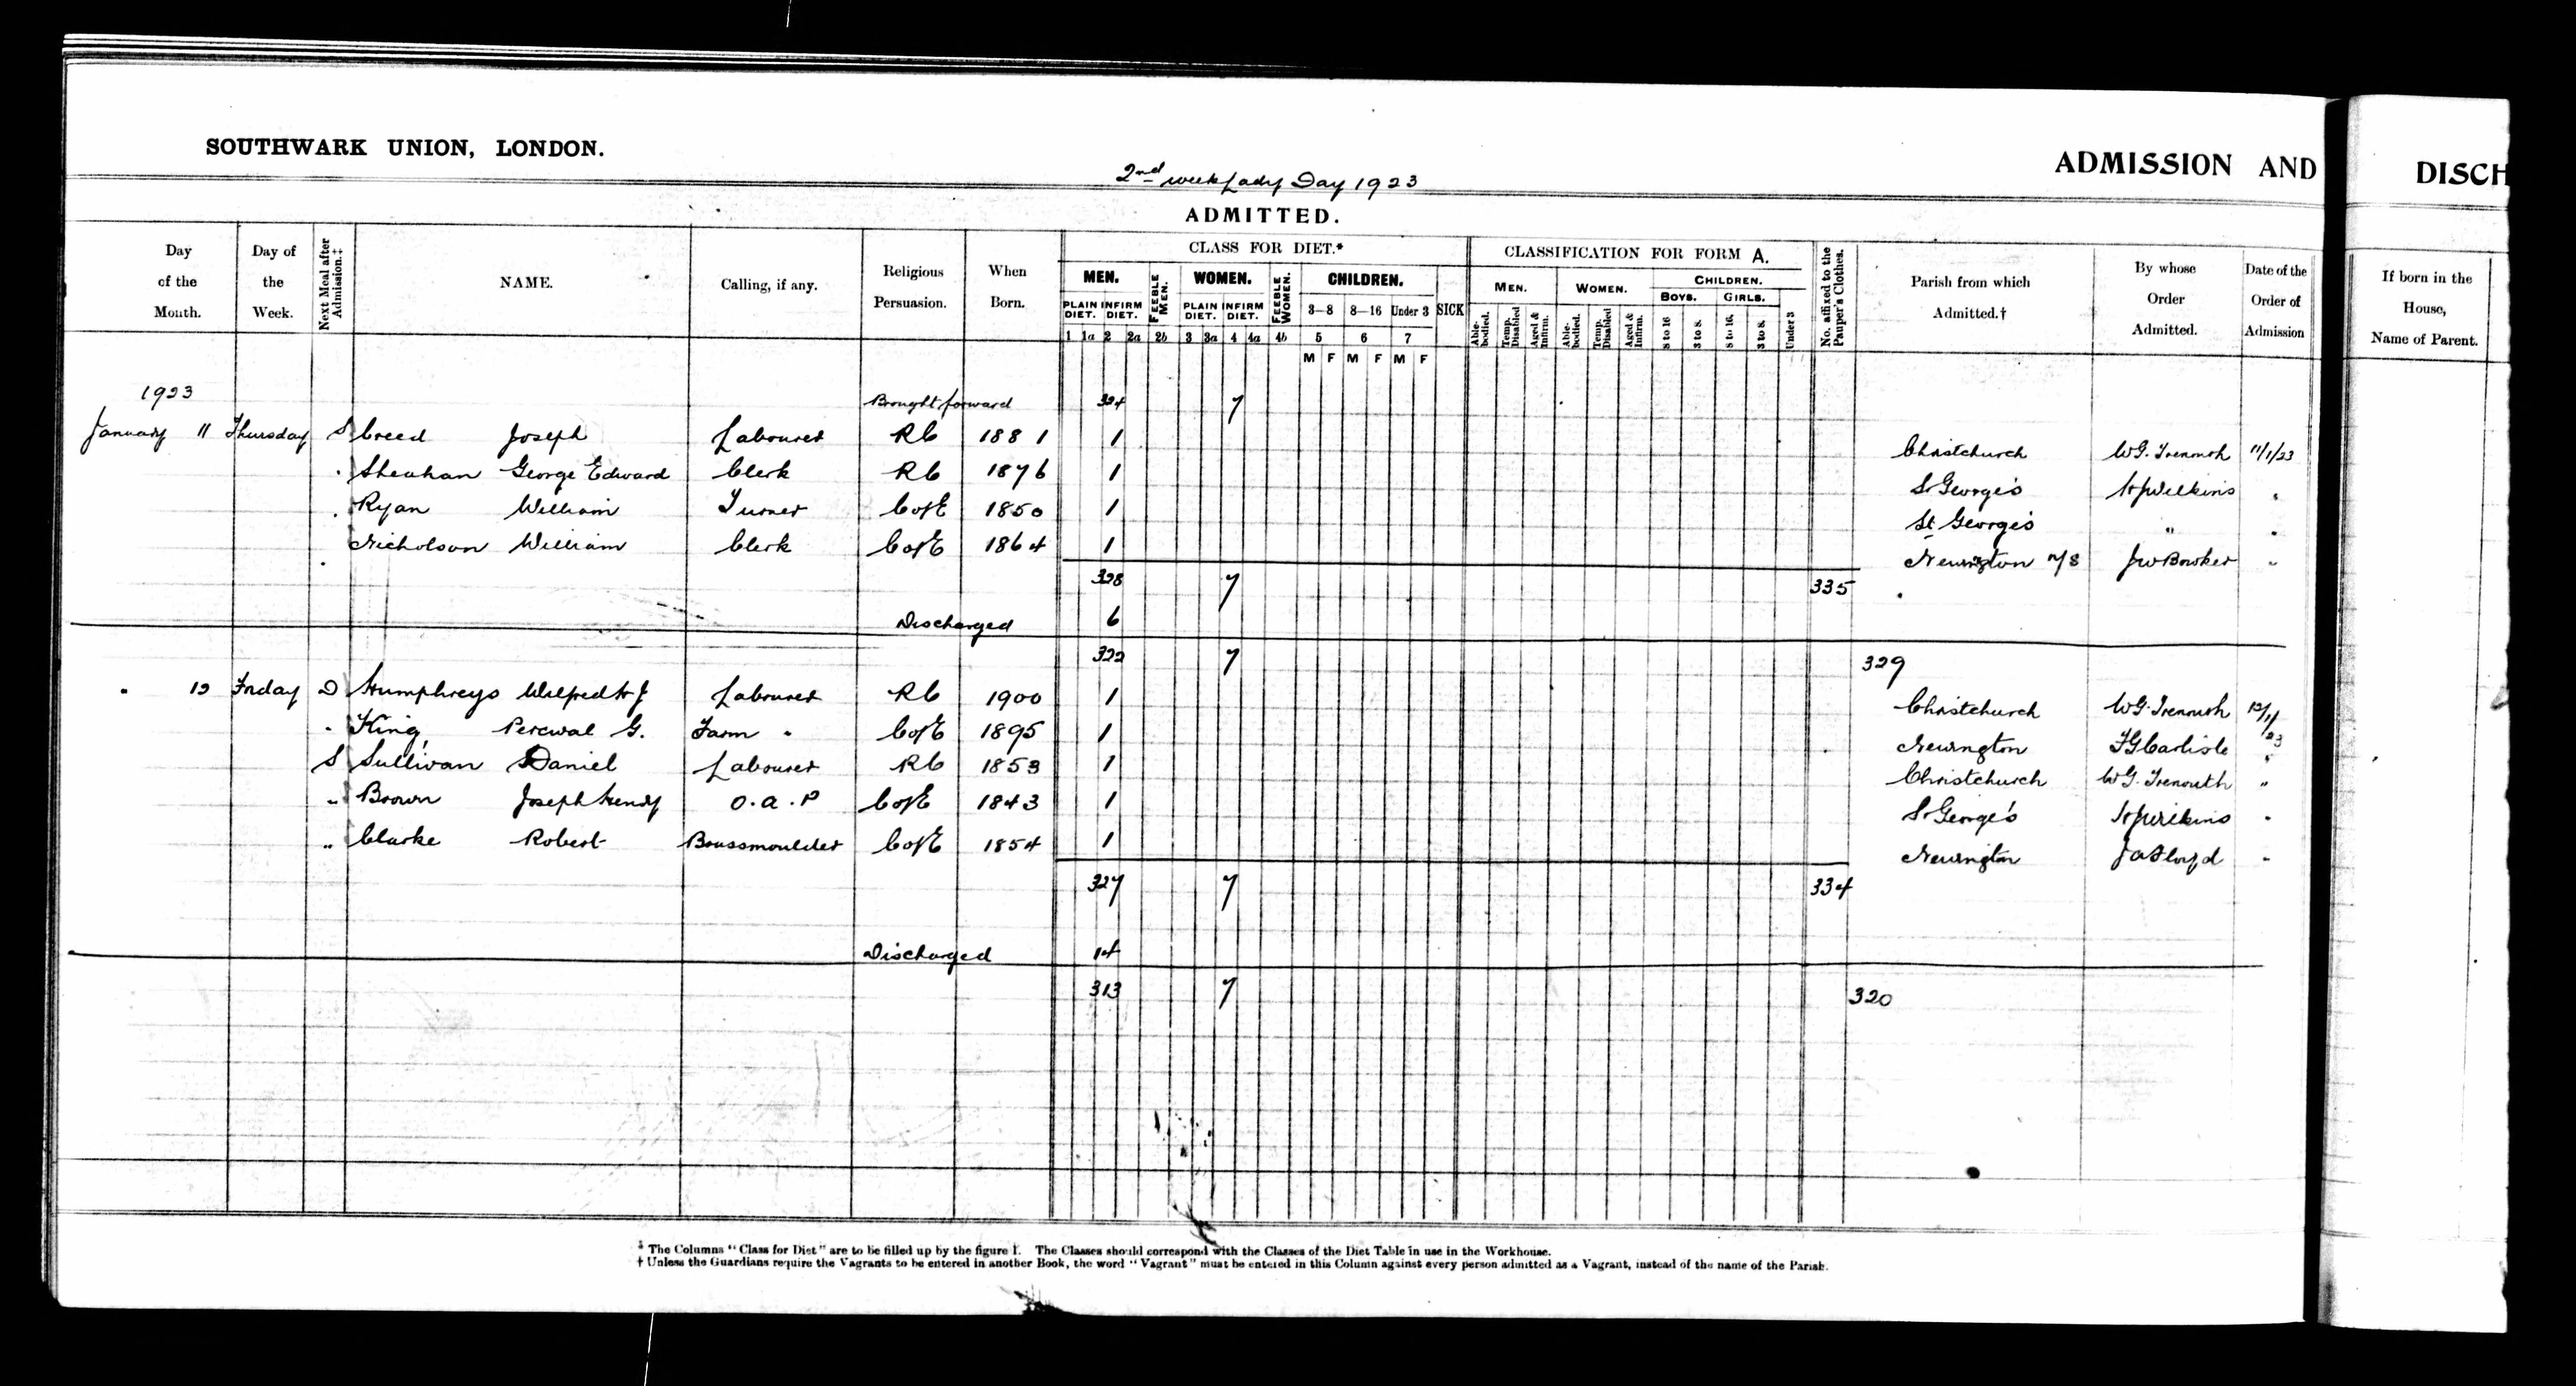 SOUTHWARK UNION, LONDON.
ADMISSION AND
DISCH
2nd week Lady Day 1923
ADMITTED.
Day of the Month.
Day of the Week.
Next Meal after Admission.‡
NAME.
Calling, if any.
Religious Persuasion.
When Born.
CLASS FOR DIET.*
MEN. FEEBLE MEN. WOMEN. FEEBLE WOMEN. CHILDREN. SICK
PLAIN DIET. INFIRM DIET. PLAIN DIET. INFIRM DIET. 3—8 8—16 Under 3
1 1a 2 2a 2b 3 3a 4 4a 4b 5 6 7
M F M F M F
CLASSIFICATION FOR FORM A.
MEN. WOMEN. CHILDREN.
BOYS. GIRLS.
Able-bodied. Temp. Disabled Aged & Infirm. Able-bodied. Temp. Disabled Aged & Infirm. 8 to 16 3 to 8. 8 to 16. 3 to 8. Under 3
No. affixed to the Pauper's Clothes.
Parish from which Admitted.†
By whose Order Admitted.
Date of the Order of Admission
If born in the House, Name of Parent.
1923
Brought forward 324 7
January 11 Thursday S Creed Joseph Labourer RC 1881 1 Christchurch W.G. Trenouth 11/1/23
" Sheahan George Edward Clerk RC 1876 1 St George's H J Wilkins "
" Ryan William Turner C of E 1850 1 St George's " "
" Nicholson William Clerk C of E 1864 1 Newington J W Bowker "
328 7 335
Discharged 6
322 7 329
" 12 Friday D Humphreys Wilfred H J Labourer RC 1900 1 Christchurch W G Trenouth 12/1/23
" King, Percival G. Farm " C of E 1895 1 Newington F G Carlisle "
S Sullivan Daniel Labourer RC 1853 1 Christchurch W G. Trenouth "
" Brown Joseph Henry O.A.P C of E 1843 1 St George's H J Wilkins "
" Clarke Robert Brassmoulder C of E 1854 1 Newington J A Lloyd "
327 7 334
Discharged 14
313 7 320
* The Columns "Class for Diet" are to be filled up by the figure 1. The Classes should correspond with the Classes of the Diet Table in use in the Workhouse.
† Unless the Guardians require the Vagrants to be entered in another Book, the word "Vagrant" must be entered in this Column against every person admitted as a Vagrant, instead of the name of the Parish.